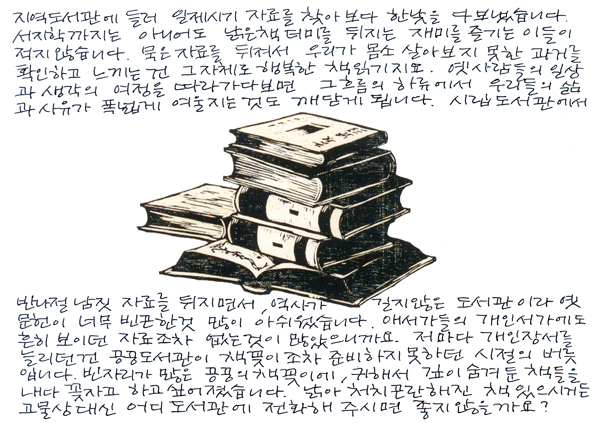 지역도서관에 들러 일제시기 자료를 찾아보다 한낮을 다 보냈습니다.
서지학까지는 아니어도 낡은책 더미를 뒤지는 재미를 즐기는 이들이
적지않습니다. 묵은자료를 뒤져서 우리가 몸소 살아보지 못한 과거를
확인하고 느끼는건 그자체로 행복한 책읽기지요. 옛사람들의 일상
과 생각의 여정을 따라가다보면 그흐름의 하류에서 우리들의 삶
과 사유가 폭넓게 여울지는것도 깨닫게 됩니다. 시립도서관에서
반나절 남짓 자료를 뒤지면서, 역사가 길지않은 도서관이라 옛
문헌이 너무 빈곤한것 많이 아쉬웠습니다. 애서가들의 개인서가에도
흔히 보이던 자료조차 없는것이 많았으니까요. 저마다 개인장서를
늘리던건 공공도서관이 책꽂이조차 준비하지못하던 시절의 버릇
입니다. 빈자리가 많은 공공의 책꽂이에, 귀해서 깊이 숨겨둔 책들을
내다 꽂자고 하고싶어졌습니다. 낡아 처치곤란해진 책 있으시거든
고물상대신 어디 도서관에 전화해 주시면 좋지않을까요?